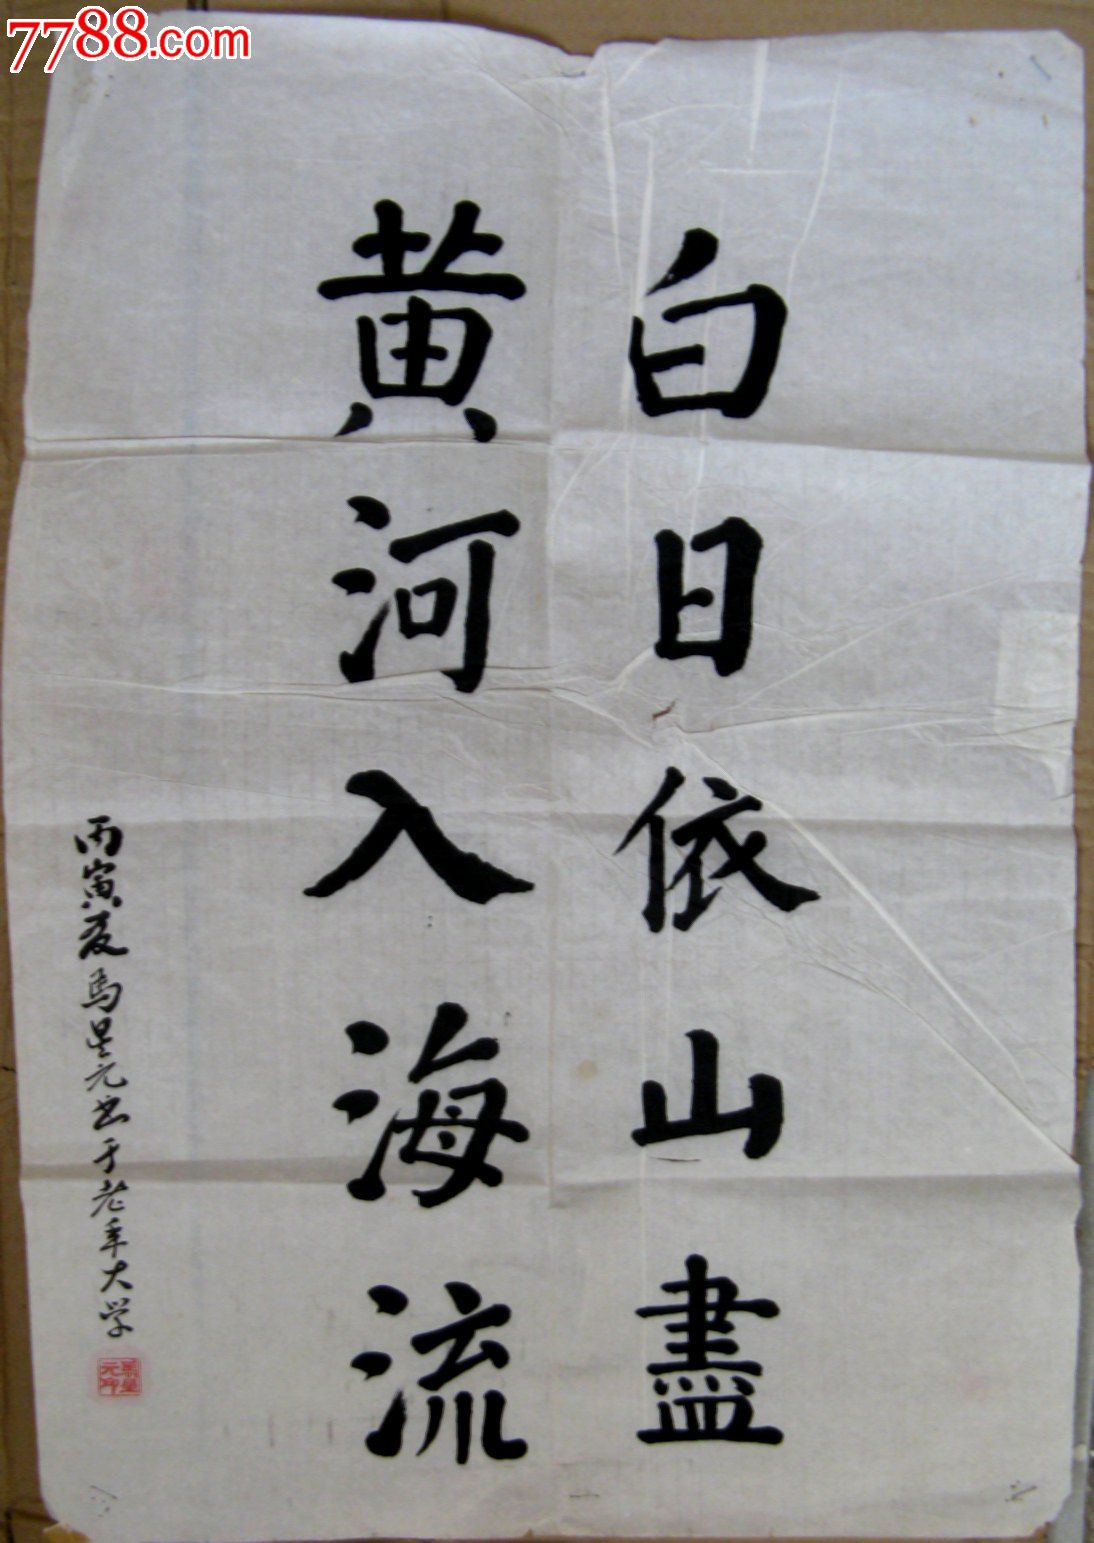 7788.com
白日依山盡
黄河入海流
丙寅夏馬星元书于老年大学